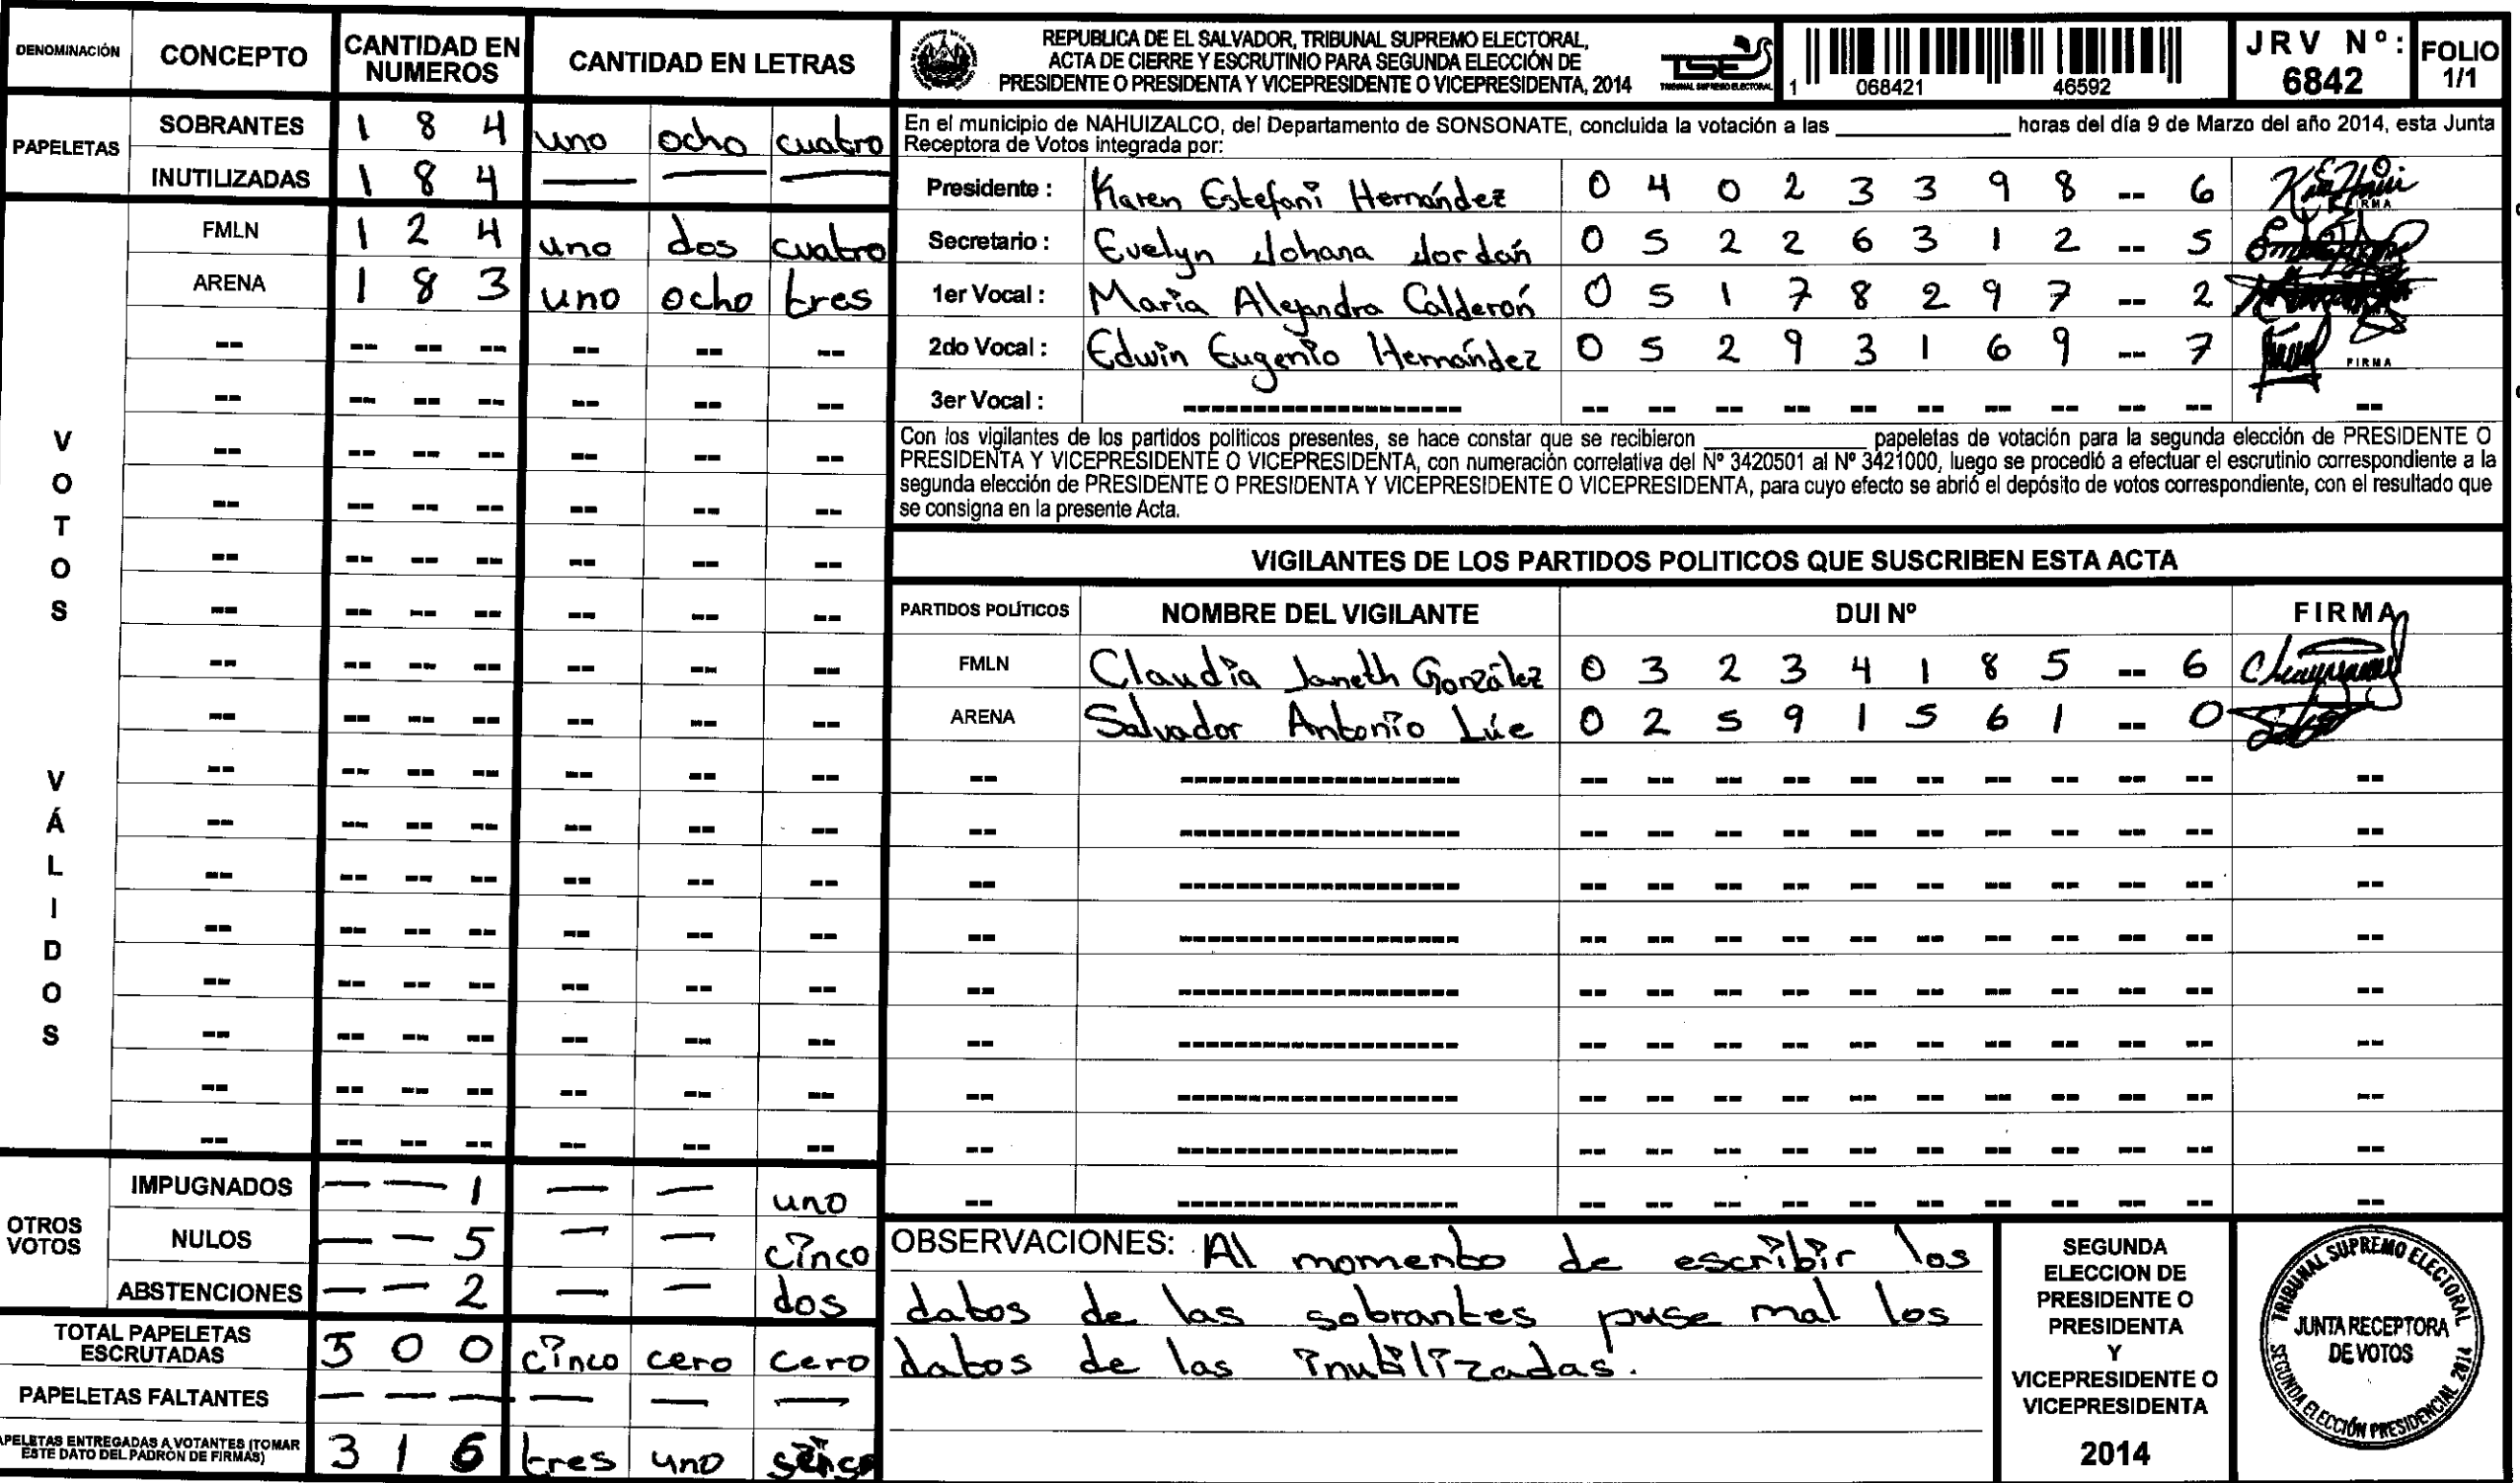 DENOMINACIÓN CONCEPTO CANTIDAD EN NUMEROS CANTIDAD EN LETRAS
PAPELETAS
SOBRANTES 1 8 4 uno ocho cuatro
INUTILIZADAS 1 8 4 — — —
VOTOS VÁLIDOS
FMLN 1 2 4 uno dos cuatro
ARENA 1 8 3 uno ocho tres
OTROS VOTOS
IMPUGNADOS — — 1 — — uno
NULOS — — 5 — — cinco
ABSTENCIONES — — 2 — — dos
TOTAL PAPELETAS ESCRUTADAS 5 0 0 cinco cero cero
PAPELETAS FALTANTES — — — — — —
PAPELETAS ENTREGADAS A VOTANTES (TOMAR ESTE DATO DEL PADRÓN DE FIRMAS) 3 1 6 tres uno
REPUBLICA DE EL SALVADOR, TRIBUNAL SUPREMO ELECTORAL,
ACTA DE CIERRE Y ESCRUTINIO PARA SEGUNDA ELECCIÓN DE
PRESIDENTE O PRESIDENTA Y VICEPRESIDENTE O VICEPRESIDENTA, 2014
TSE
TRIBUNAL SUPREMO ELECTORAL
1 068421 46592
JRV Nº: 6842
FOLIO 1/1
En el municipio de NAHUIZALCO, del Departamento de SONSONATE, concluida la votación a las ____________ horas del día 9 de Marzo del año 2014, esta Junta
Receptora de Votos integrada por:
Presidente : Karen Estefani Hernández 0 4 0 2 3 3 9 8 -- 6
FIRMA
Secretario : Evelyn Johana Jordán 0 5 2 2 6 3 1 2 -- 5
1er Vocal : Maria Alejandra Calderón 0 5 1 7 8 2 9 7 -- 2
2do Vocal : Edwin Eugenio Hernández 0 5 2 9 3 1 6 9 -- 7
FIRMA
3er Vocal :
Con los vigilantes de los partidos políticos presentes, se hace constar que se recibieron ____________ papeletas de votación para la segunda elección de PRESIDENTE O
PRESIDENTA Y VICEPRESIDENTE O VICEPRESIDENTA, con numeración correlativa del Nº 3420501 al Nº 3421000, luego se procedió a efectuar el escrutinio correspondiente a la
segunda elección de PRESIDENTE O PRESIDENTA Y VICEPRESIDENTE O VICEPRESIDENTA, para cuyo efecto se abrió el depósito de votos correspondiente, con el resultado que
se consigna en la presente Acta.
VIGILANTES DE LOS PARTIDOS POLITICOS QUE SUSCRIBEN ESTA ACTA
PARTIDOS POLÍTICOS NOMBRE DEL VIGILANTE DUI Nº FIRMA
FMLN Claudia Janeth González 0 3 2 3 4 1 8 5 -- 6
ARENA Salvador Antonio Lúe 0 2 5 9 1 5 6 1 -- 0
OBSERVACIONES: Al momento de escribir los
datos de las sobrantes puse mal los
datos de las inutilizadas.
SEGUNDA
ELECCION DE
PRESIDENTE O
PRESIDENTA
Y
VICEPRESIDENTE O
VICEPRESIDENTA
2014
TRIBUNAL SUPREMO ELECTORAL
JUNTA RECEPTORA
DE VOTOS
SEGUNDA ELECCIÓN PRESIDENCIAL 2014